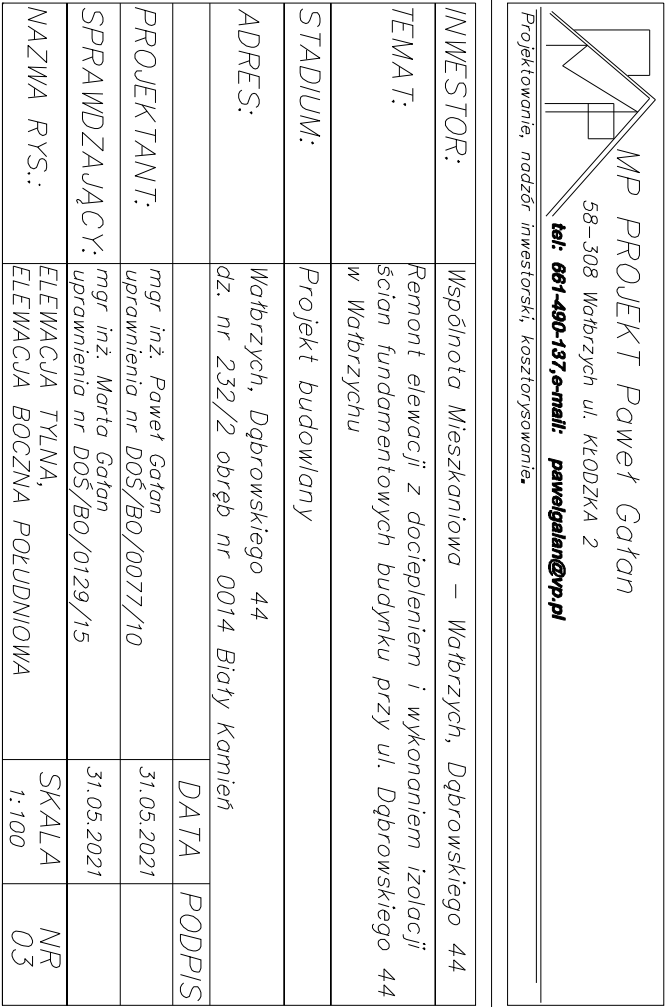 MP PROJEKT Paweł Gałan
58-308 Wałbrzych ul. KŁODZKA 2
tel: 661-490-137,e-mail: pawelgalan@vp.pl
Projektowanie, nadzór inwestorski, kosztorysowanie.
INWESTOR: Wspólnota Mieszkaniowa – Wałbrzych, Dąbrowskiego 44
TEMAT: Remont elewacji z dociepleniem i wykonaniem izolacji
ścian fundamentowych budynku przy ul. Dąbrowskiego 44
w Wałbrzychu
STADIUM: Projekt budowlany
ADRES: Wałbrzych, Dąbrowskiego 44
dz. nr 232/2 obręb nr 0014 Biały Kamień
DATA PODPIS
PROJEKTANT: mgr inż. Paweł Gałan
uprawnienia nr DOŚ/BO/0077/10 31.05.2021
SPRAWDZAJĄCY: mgr inż. Marta Gałan
uprawnienia nr DOŚ/BO/0129/15 31.05.2021
NAZWA RYS.: ELEWACJA TYLNA,
ELEWACJA BOCZNA POŁUDNIOWA
SKALA
1:100
NR
03